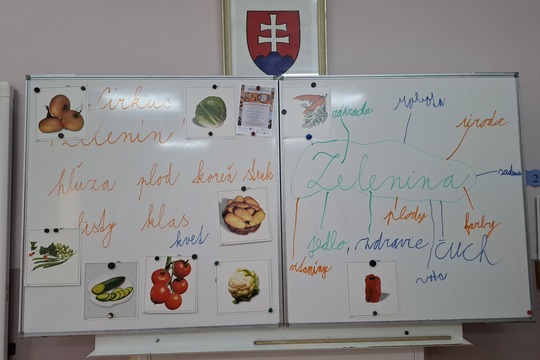 Cirkus
zelenín
hľuza plod koreň struk
listy klas
kvet
záhrada
robota
úroda
Zelenina
sadenie
plody
farby
jedlo, zdravie
čuch
vitamíny